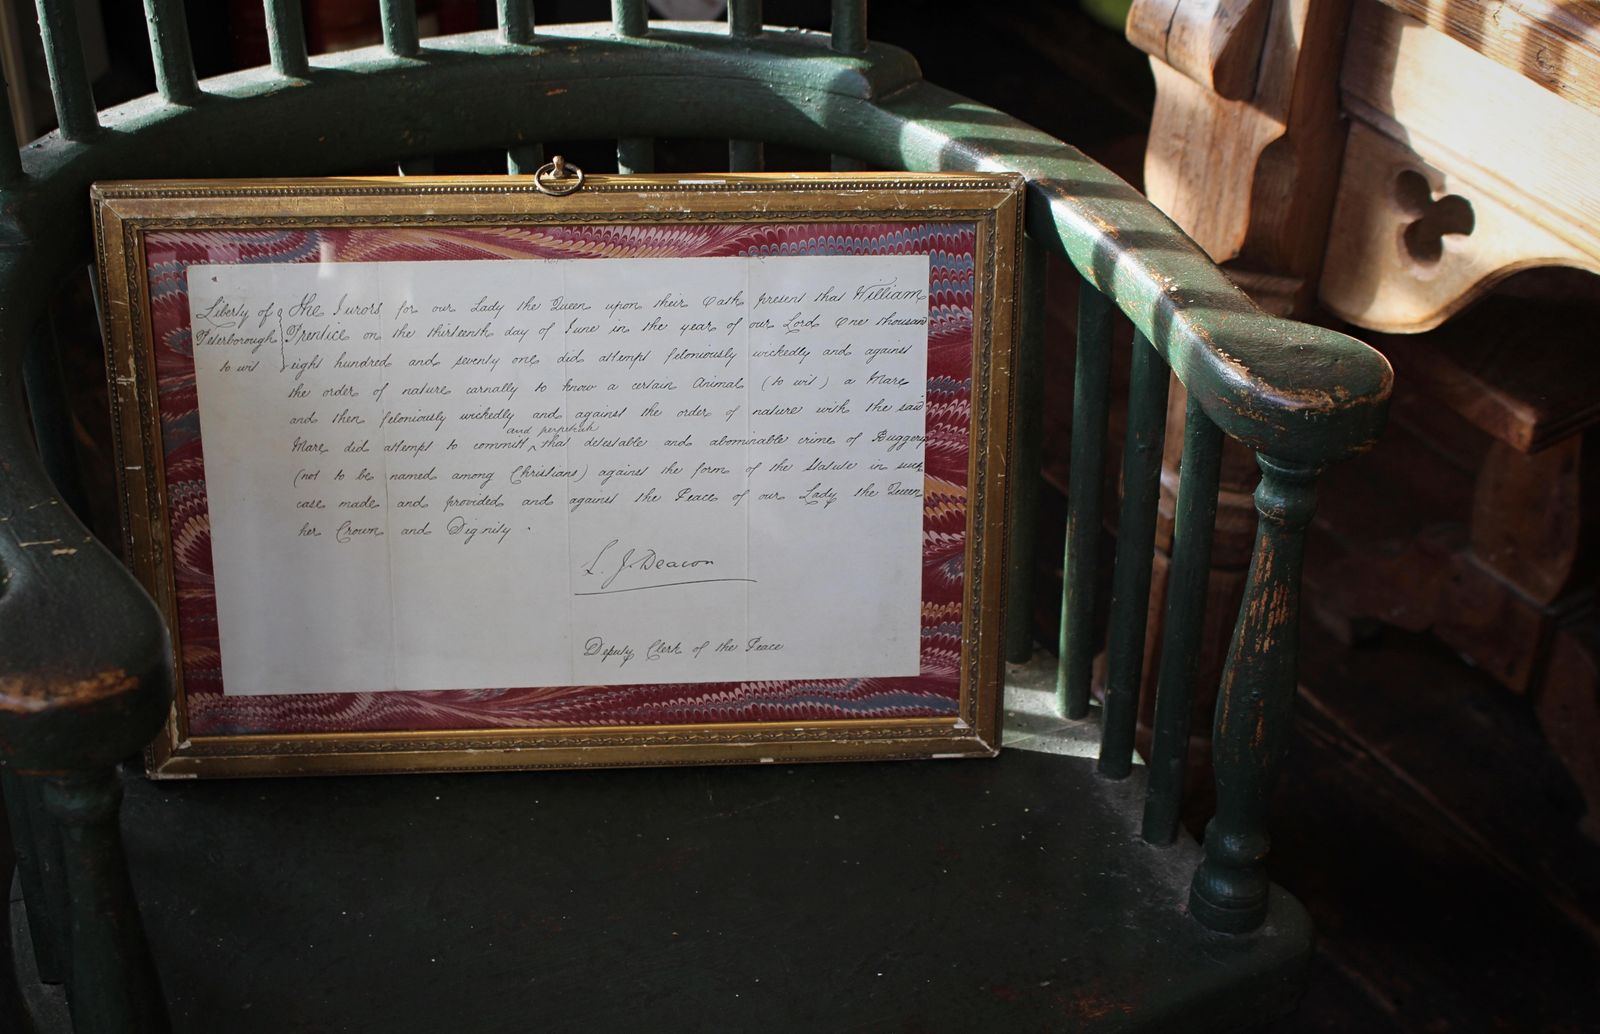 Liberty of The Jurors for our Lady the Queen upon their Oath present that William
Peterborough Prentice on the thirteenth day of June in the year of our Lord One thousand
to wit eight hundred and seventy one did attempt feloniously wickedly and against
the order of nature carnally to know a certain Animal (to wit) a Mare
and then feloniously wickedly and against the order of nature with the said
and perpetrate
Mare did attempt to committ ^ that detestable and abominable crime of Buggery
(not to be named among Christians) against the form of the Statute in such
case made and provided and against the Peace of our Lady the Queen
her Crown and Dignity .
L. J. Deacon
Deputy Clerk of the Peace